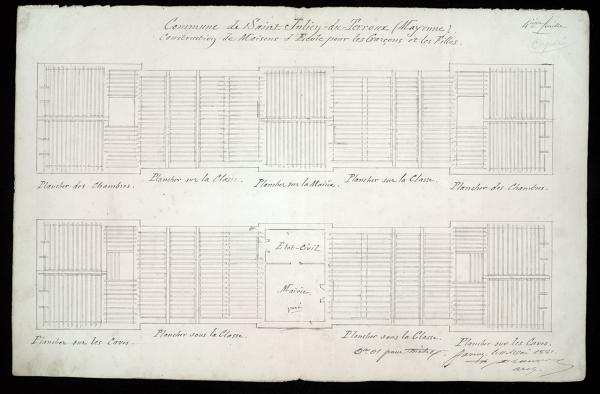 Commune de Saint Julien-du-Terroux (Mayenne).
Construction de Maisons d'Ecole pour les Garçons et les Filles.
4ème feuille
Plancher des Chambres.
Plancher sur la Classe.
Plancher sur la Mairie
Plancher sur la Classe.
Plancher des Chambres.
Etat-Civil
Mairie
Plancher sur les Caves.
Plancher sous la Classe.
Plancher sous la Classe.
Plancher sur les Caves.